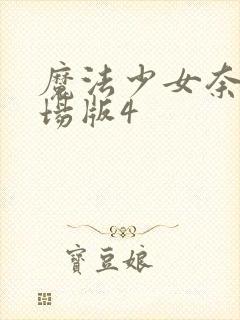 魔法少女奈
場版4
寶豆娘